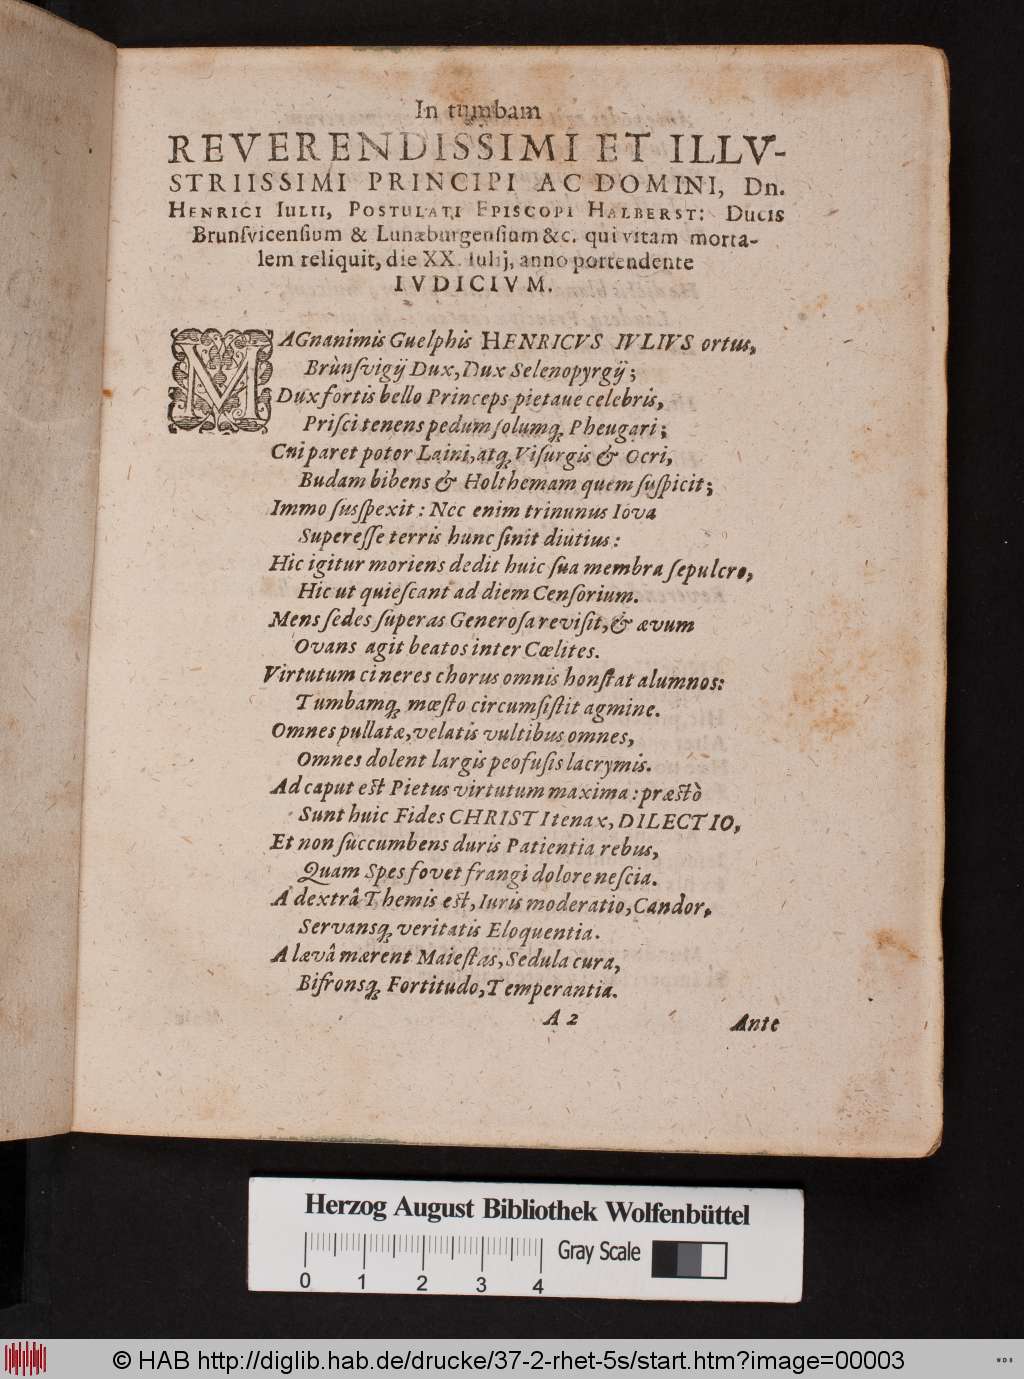 In tumbam
REVERENDISSIMI ET ILLV-
STRIISSIMI PRINCIPI AC DOMINI, Dn.
HENRICI IULII, POSTULATI EPISCOPI HALBERST: Ducis
Brunſvicenſium & Lunæburgenſium &c. qui vitam morta-
lem reliquit, die XX. Iulij, anno portendente
IVDICIVM.
MAGnanimis Guelphis HENRICVS IVLIVS ortus,
Brùnſvigij Dux, Dux Selenopyrgij;
Dux fortis bello Princeps pietaue celebris,
Priſci tenens pedum ſolumq́; Pheugari;
Cui paret potor Laini, atq́; Viſurgis & Ocri,
Budam bibens & Holthemam quem ſuſpicit;
Immo ſuſpexit: Nec enim trinunus Iova
Supereſſe terris hunc ſinit diutius:
Hic igitur moriens dedit huic ſua membra ſepulcro,
Hic ut quieſcant ad diem Cenſorium.
Mens ſedes ſuperas Generoſa reviſit, & ævum
Ovans agit beatos inter Cœlites.
Virtutum cineres chorus omnis honſtat alumnos:
Tumbamq́; mœſto circumſiſtit agmine.
Omnes pullatæ, velatis vultibus omnes,
Omnes dolent largis peofuſis lacrymis.
Ad caput eſt Pietus virtutum maxima: præſtò
Sunt huic Fides CHRISTI tenax, DILECTIO,
Et non ſuccumbens duris Patientia rebus,
Quam Spes fovet frangi dolore neſcia.
A dextrâ Themis eſt, Iuris moderatio, Candor,
Servansq́; veritatis Eloquentia.
A lævâ mærent Maieſtas, Sedula cura,
Bifronsq́; Fortitudo, Temperantia.
A 2
Ante
Herzog August Bibliothek Wolfenbüttel
Gray Scale
0 1 2 3 4
© HAB http://diglib.hab.de/drucke/37-2-rhet-5s/start.htm?image=00003
WDB